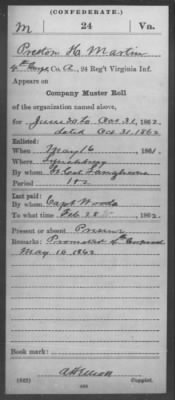 (CONFEDERATE.)
M 24 Va.
Preston H. Martin
4th Corp, Co. A., 24 Reg't Virginia Inf.
Appears on
Company Muster Roll
of the organization named above,
for June 30 to Oct 31, 1862.
dated Oct 31, 1862
Enlisted:
When May 16, 1861.
Where Lynchburg
By whom Lt Col Langhorne
Period 1 yr
Last paid:
By whom Capt Woods
To what time Feb 28, 1862.
Present or absent Present
Remarks: Promoted 4th Corporal
May 10, 1862
Book mark:
(642) Copyist.